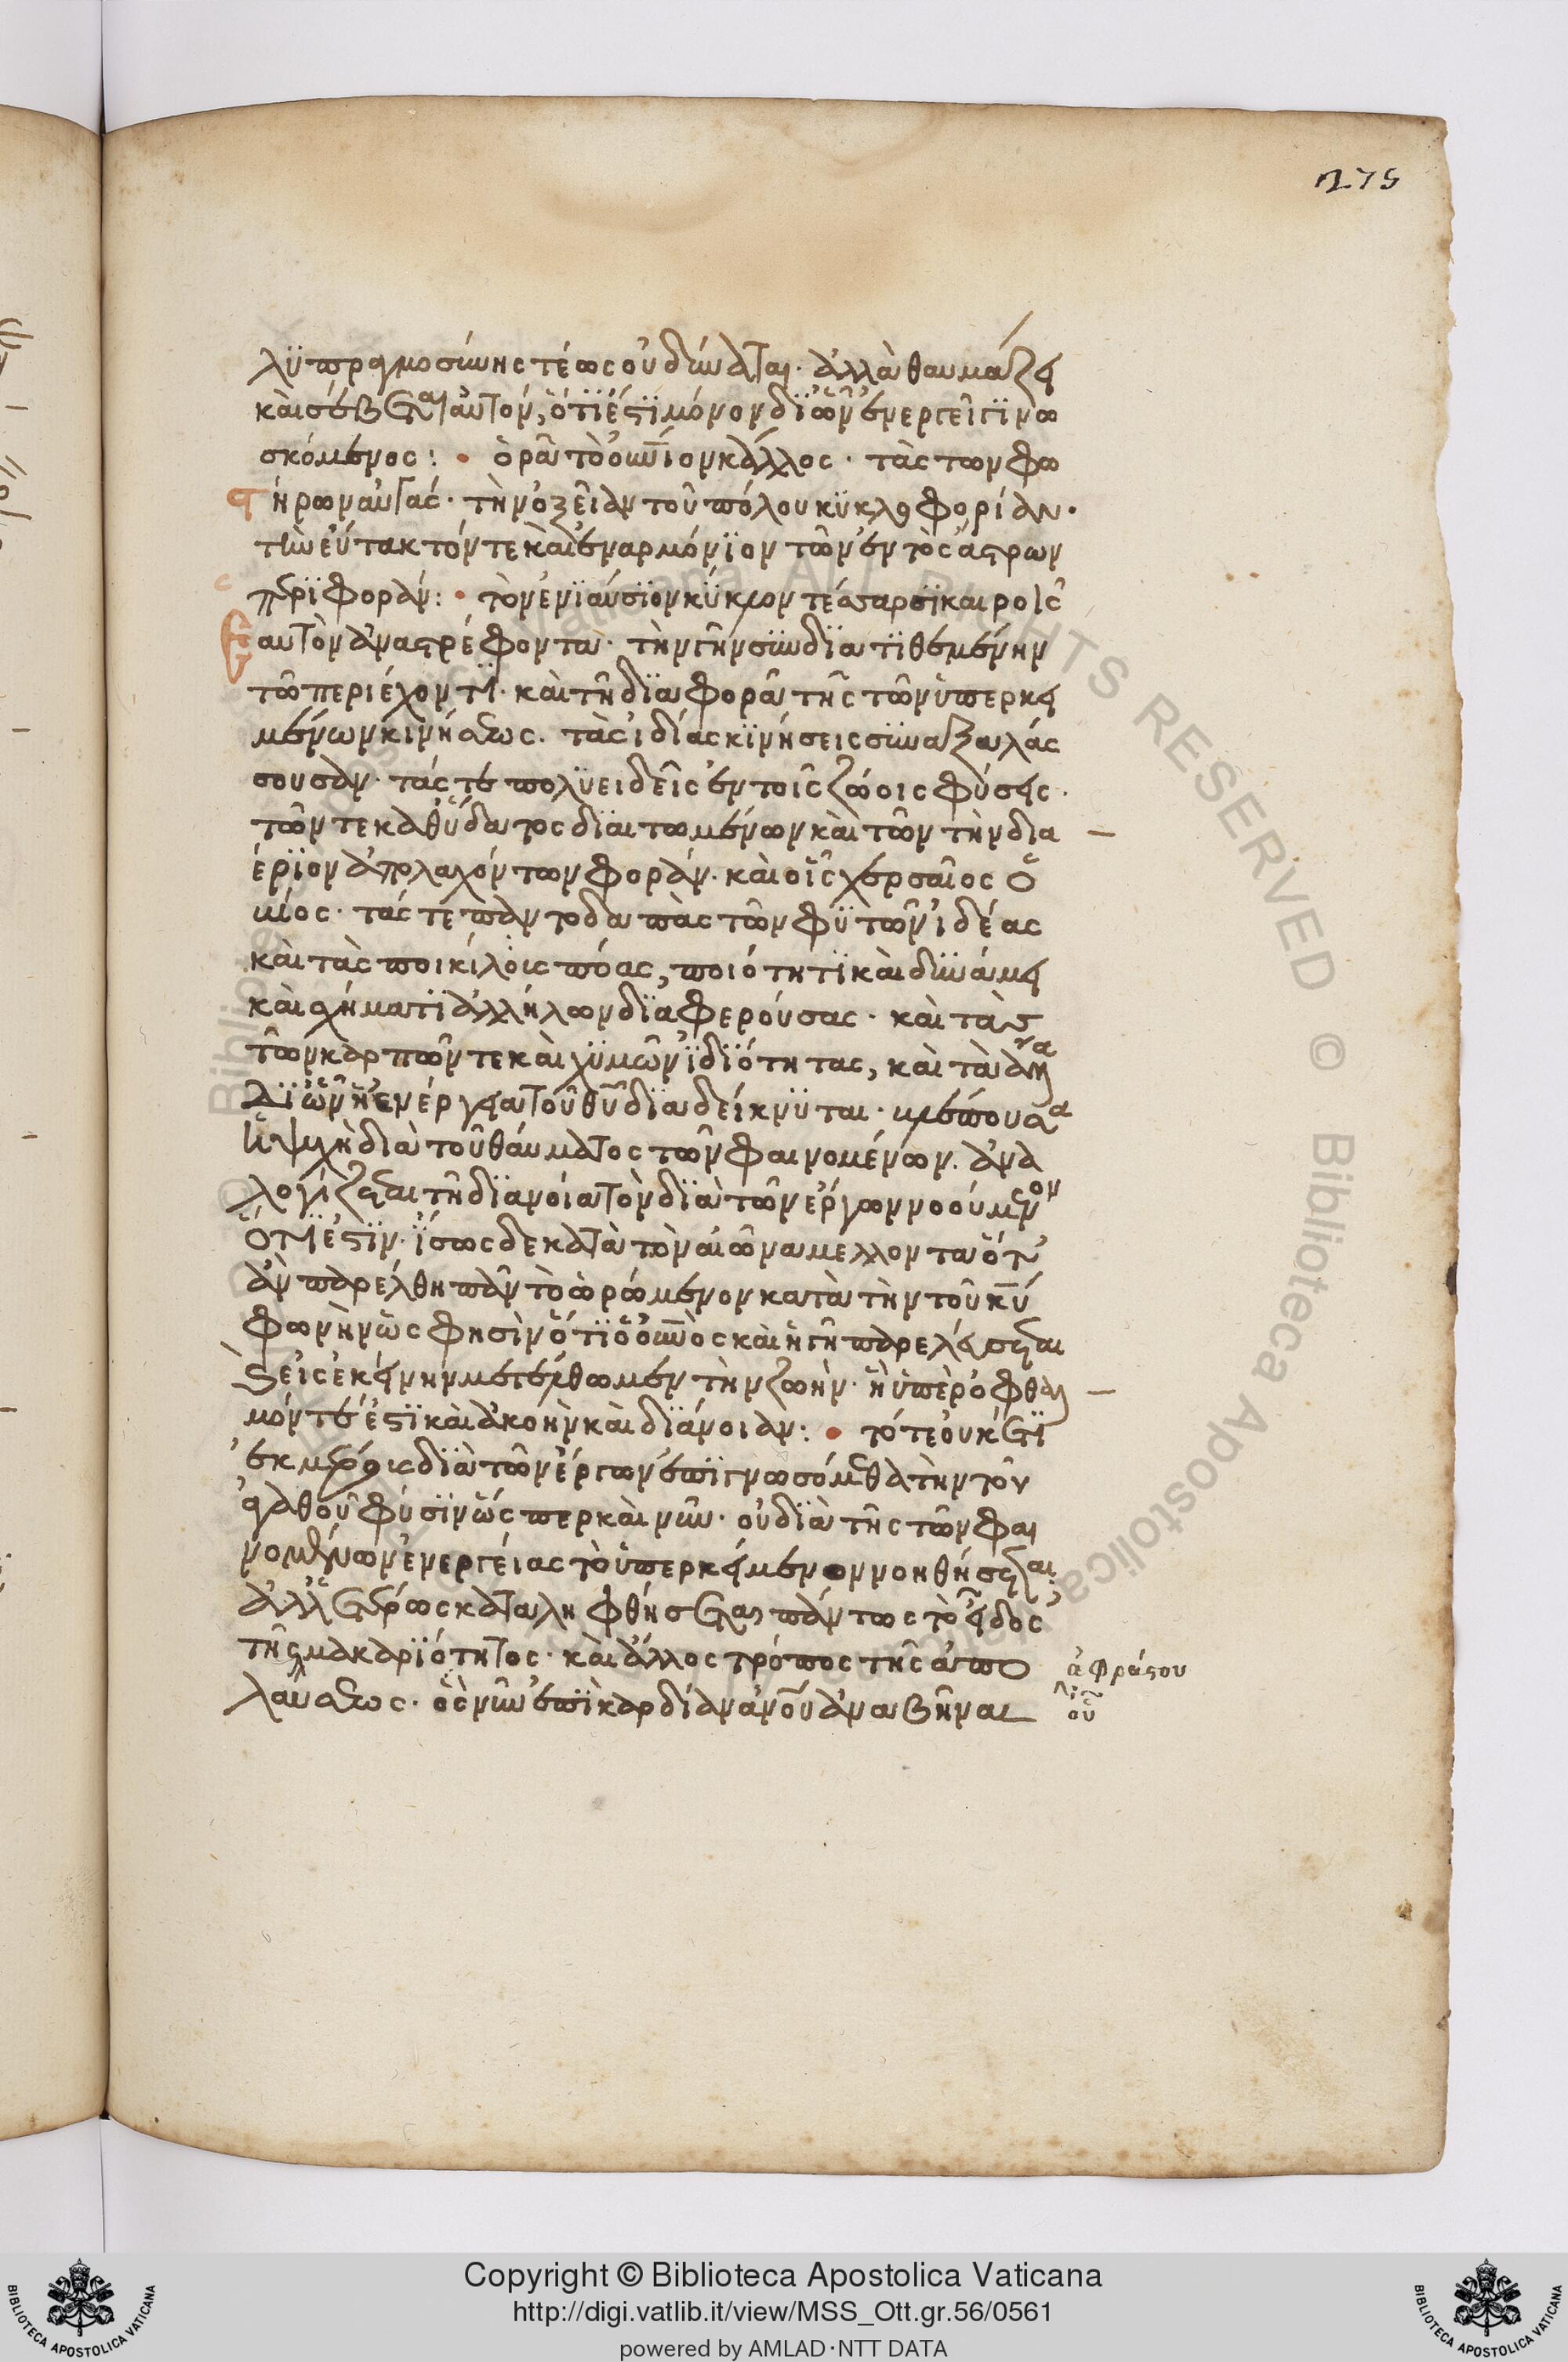 275
λυπραγμοσύνης τέως οὐ δύναται· ἀλλὰ θαυμάζει
καὶ σέβεται αὐτὸν, ὅτι ἔστι μόνον δι' ὧν ἐνεργεῖ γινω
σκόμενος: ὁρᾶ τὸ οὐνιον κάλλος· τὰς τῶν φω
στήρων αὐγάς· τὴν ὀξεῖαν τοῦ πόλου κυκλοφορίαν·
τὴν εὔτακτόν τε καὶ ἐναρμόνιον τῶν ἐντὸς ἄστρων
περιφοράν: τὸν ἐνιαύσιον κύκλον τέσσαρσι καιροῖς
ἑαυτὸν ἀναστρέφοντα· τὴν γῆν συνδιατιθεμένην
τῶ περιέχοντι· καὶ τῆ διαφορᾶ τῆς τῶν ὑπερκει
μένων κινήσεως· τὰς ἰδίας κινήσεις συναλλάσ
σουσαν· τάς τε πολυειδεῖς ἐν τοῖς ζώοις φύσεις·
τῶν τε καθ' ὕδατος διαιτωμένων καὶ τῶν τὴν δια
έριον ἀπολαχόντων φοράν· καὶ οἷς χερσαῖος ὁ
βίος· τάς τε παντοδαπὰς τῶν φυτῶν ἰδέας
καὶ τὰς ποικίλοις πόας, ποιότητι καὶ δυνάμει
καὶ σχήματι ἀλλήλων διαφερούσας· καὶ τὰς
τῶν καρπῶν τε καὶ χυμῶν ἰδιότητας, καὶ τὰ ἄλλα
δι' ὧν ἡ ἐνέργεια τοῦ θυ διαδείκνυται· βλέπουσα
ἡ ψυχὴ διὰ τοῦ θαύματος τῶν φαινομένων· ἀνα
λογίζεται τῆ διανοία τὸν διὰ τῶν ἔργων νοούμενον
ὅτι ἔστιν· ἴσως δὲ κατὰ τὸν αἰῶνα μέλλοντα ὅτ'
ἂν παρέλθη πᾶν τὸ ὁρώμενον κατὰ τὴν τοῦ κυ
φωνὴν ὥς φησὶν ὅτι ὁ οὐνος καὶ ἡ γῆ παρελεύσεται
καὶ εἰς ἐκείνην μετέλθωμεν τὴν ζωὴν· ἣ ὑπὲρ ὀφθαλ
μόν τέ ἐστι καὶ ἀκοὴν καὶ διάνοιαν: τότε οὐκέτι
ἐκ μέρους διὰ τῶν ἔργων ἐπιγνωσόμεθα τὴν τοῦ
ἀγαθοῦ φύσιν ὥσπερ καὶ νῦν· οὐ διὰ τῆς τῶν φαι
νομένων ἐνεργείας τὸ ὑπερκείμενον νοηθήσεται·
ἀλλ' ἑτέρως καταληφθήσεται πάντως τὸ εἶδος
τῆς μακαριότητος· καὶ ἄλλος τρόπος τῆς ἀπο
λαύσεως· ὃς νῦν ἐπὶ καρδίαν ἀνου ἀναβῆναι
ἀφράστου
οὐ